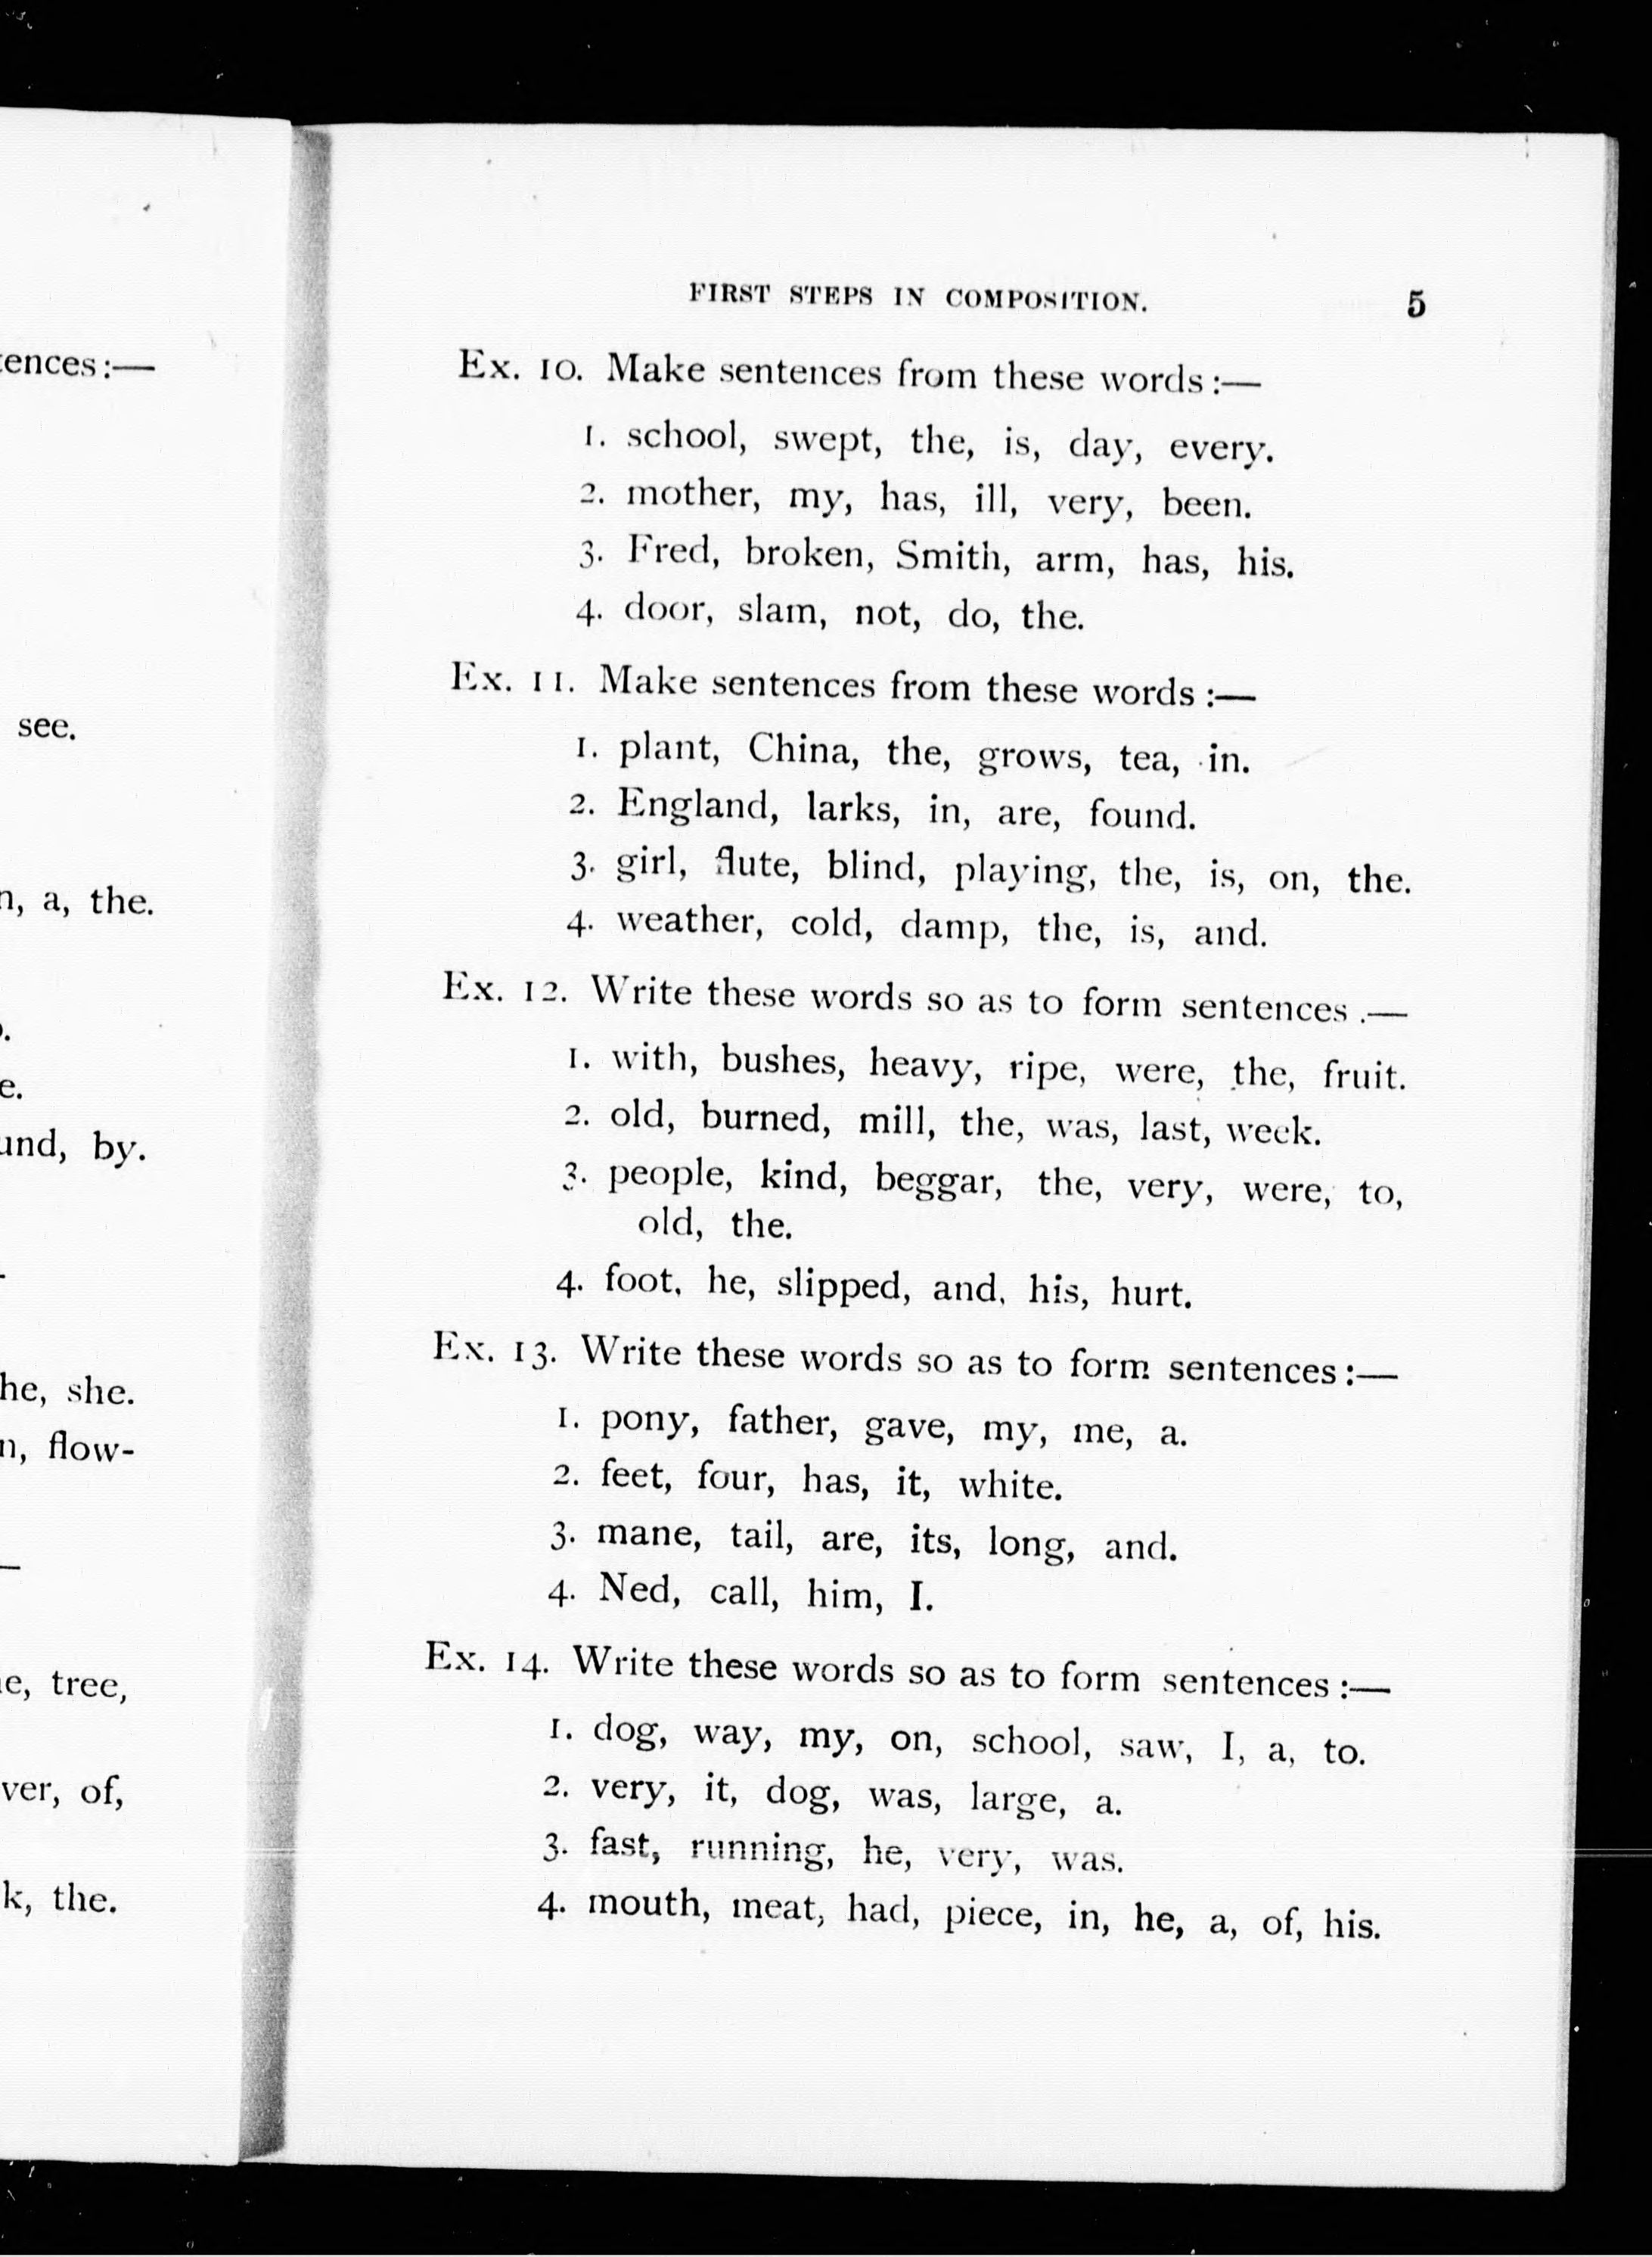 tences:—
see.
a, the.
e.
by.
he, she.
flow-
tree,
of,
the.
FIRST STEPS IN COMPOSITION. 5
Ex. 10. Make sentences from these words:—
1. school, swept, the, is, day, every.
2. mother, my, has, ill, very, been.
3. Fred, broken, Smith, arm, has, his.
4. door, slam, not, do, the.
Ex. 11. Make sentences from these words :—
1. plant, China, the, grows, tea, in.
2. England, larks, in, are, found.
3. girl, flute, blind, playing, the, is, on, the.
4. weather, cold, damp, the, is, and.
Ex. 12. Write these words so as to form sentences .—
1. with, bushes, heavy, ripe, were, the, fruit.
2. old, burned, mill, the, was, last, week.
3. people, kind, beggar, the, very, were, to,
old, the.
4. foot, he, slipped, and, his, hurt.
Ex. 13. Write these words so as to form sentences:—
1. pony, father, gave, my, me, a.
2. feet, four, has, it, white.
3. mane, tail, are, its, long, and.
4. Ned, call, him, I.
Ex. 14. Write these words so as to form sentences :—
1. dog, way, my, on, school, saw, I, a, to.
2. very, it, dog, was, large, a.
3. fast, running, he, very, was.
4. mouth, meat, had, piece, in, he, a, of, his.